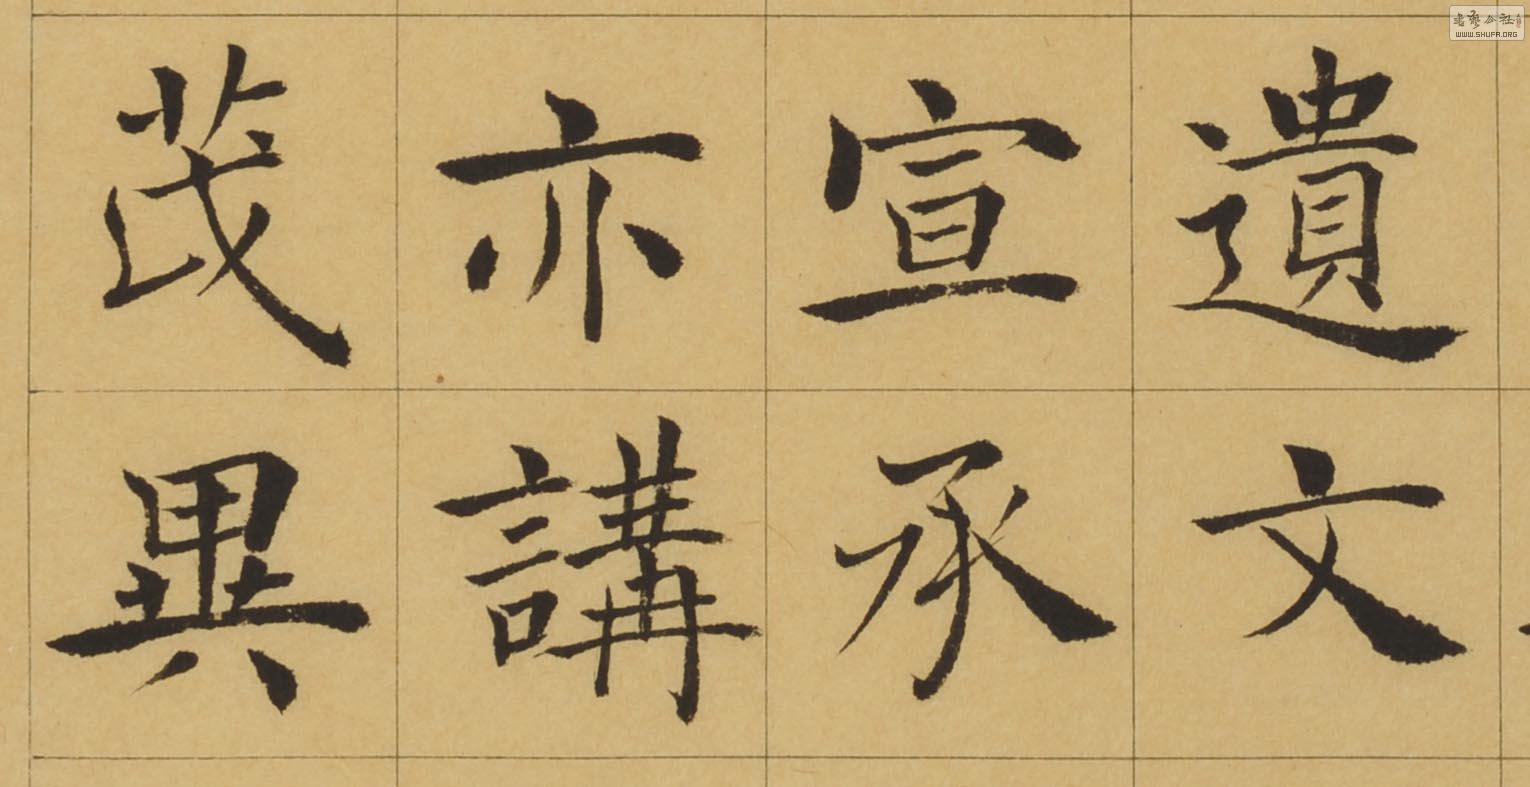 遺文
宣承
亦講
茂異
書藝公社
WWW.SHUFA.ORG